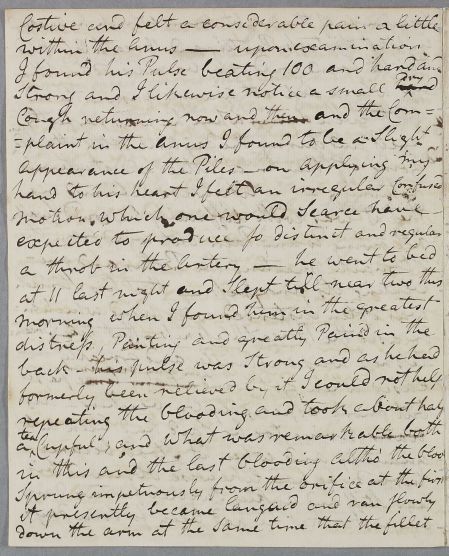 Costive and felt a considerable pain a little
within the anus — upon examination
I found his Pulse beating 100 and hard and
Strong and I likewise notice a small dry
Cough returning now and then and the Com=
=plaint in the anus I found to be a Slight
appearance of the Piles — on applying my
hand to his heart I felt an irregular Confused
motion, which one would Scarce have
expected to produce so distinct and regular
a throb in the Artery — he went to bed
at 11 last night and Slept till near two this
morning when I found him in the greatest
distress, Panting and greatly Pained in the
back — his pulse was Strong and as he had
formerly been relieved by it I could not help
repeating the blooding and took about half
a tea Cupful, and what was remarkable both
in this and the last blooding altho' the bloo
Sprung impetuously from the orifice at the first
it presently became languid and ran slowly
down the arm at the Same time that the fillet